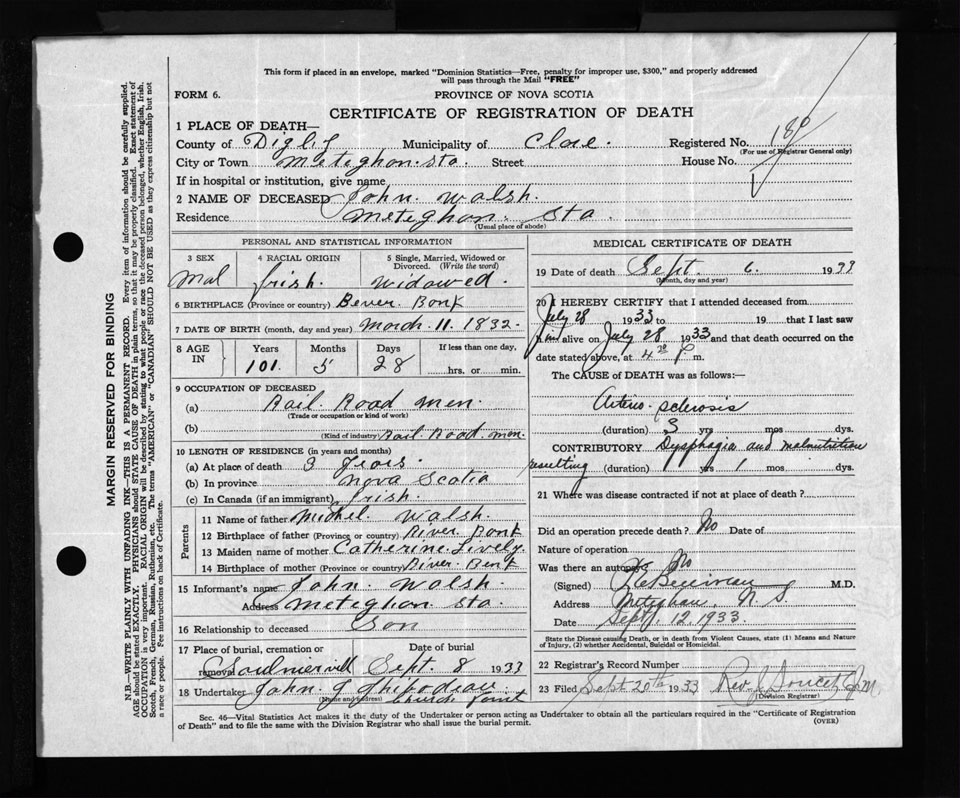 This form if placed in an envelope, marked "Dominion Statistics—Free, penalty for improper use, $300," and properly addressed
will pass through the Mail "FREE"
FORM 6.
PROVINCE OF NOVA SCOTIA
CERTIFICATE OF REGISTRATION OF DEATH
1 PLACE OF DEATH—
County of Digby Municipality of Clare. Registered No. 180
(For use of Registrar General only)
City or Town Meteghan. Sta. Street House No.
If in hospital or institution, give name
2 NAME OF DECEASED John Walsh.
Residence Meteghan. Sta.
(Usual place of abode)
PERSONAL AND STATISTICAL INFORMATION
3 SEX 4 RACIAL ORIGIN 5 Single, Married, Widowed or
Divorced. (Write the word)
Mal Irish. Widowed.
6 BIRTHPLACE (Province or country) Bever. Bonk
7 DATE OF BIRTH (month, day and year) March. 11. 1832.
8 AGE IN Years Months Days If less than one day,
101. 5 28 hrs. or min.
9 OCCUPATION OF DECEASED
(a) Rail. Road men.
(Trade or occupation or kind of work)
(b) Rail. Road. men.
(Kind of industry)
10 LENGTH OF RESIDENCE (in years and months)
(a) At place of death 3 Years.
(b) In province Nova Scotia
(c) In Canada (if an immigrant) Irish.
Parents
11 Name of father Michel. Walsh.
12 Birthplace of father (Province or country) River Bonk
13 Maiden name of mother Catherine Lively
14 Birthplace of mother (Province or country) River. Benk
15 Informant's name John. Walsh.
Address Meteghan Sta.
16 Relationship to deceased Son
17 Place of burial, cremation or Date of burial
removal Soulmervill Sept. 8 1933
18 Undertaker John. G Thibodeau
(Name and address) Church Point
MEDICAL CERTIFICATE OF DEATH
19 Date of death Sept. 6. 1933
(Month, day and year)
20 I HEREBY CERTIFY that I attended deceased from
July 28 1933 to 19 that I last saw
him alive on July 28 1933 and that death occurred on the
date stated above, at 4 P m.
The CAUSE OF DEATH was as follows:—
Arterio-sclerosis
(duration) 3 yrs mos dys.
CONTRIBUTORY Dysphagia and malnutrition
resulting (duration) yrs 1 mos dys.
21 Where was disease contracted if not at place of death?
Did an operation precede death? No Date of
Nature of operation
Was there an autopsy No
(Signed) M.D.
Address Meteghan, N S
Date Sept. 12, 1933
State the Disease causing Death, or in death from Violent Causes, state (1) Means and Nature
of Injury, (2) whether Accidental, Suicidal or Homicidal.
22 Registrar's Record Number
23 Filed Sept 20th 1933 Rev.
(Division Registrar)
Sec. 46—Vital Statistics Act makes it the duty of the Undertaker or person acting as Undertaker to obtain all the particulars required in the "Certificate of Registration
of Death" and to file the same with the Division Registrar who shall issue the burial permit. (OVER)
MARGIN RESERVED FOR BINDING
N.B.—WRITE PLAINLY WITH UNFADING INK—THIS IS A PERMANENT RECORD. Every item of information should be carefully supplied.
AGE should be stated EXACTLY. PHYSICIANS should STATE CAUSE OF DEATH in plain terms, so that it may be properly classified. Exact statement of
OCCUPATION is very important. RACIAL ORIGIN will be described by stating to what people or race the deceased person belonged, whether English, Irish,
Scotch, French, German, Russian, Ruthenian, etc. The terms "AMERICAN" or "CANADIAN" SHOULD NOT BE USED as they express citizenship but not
a race or people. Fee instructions on back of Certificate.